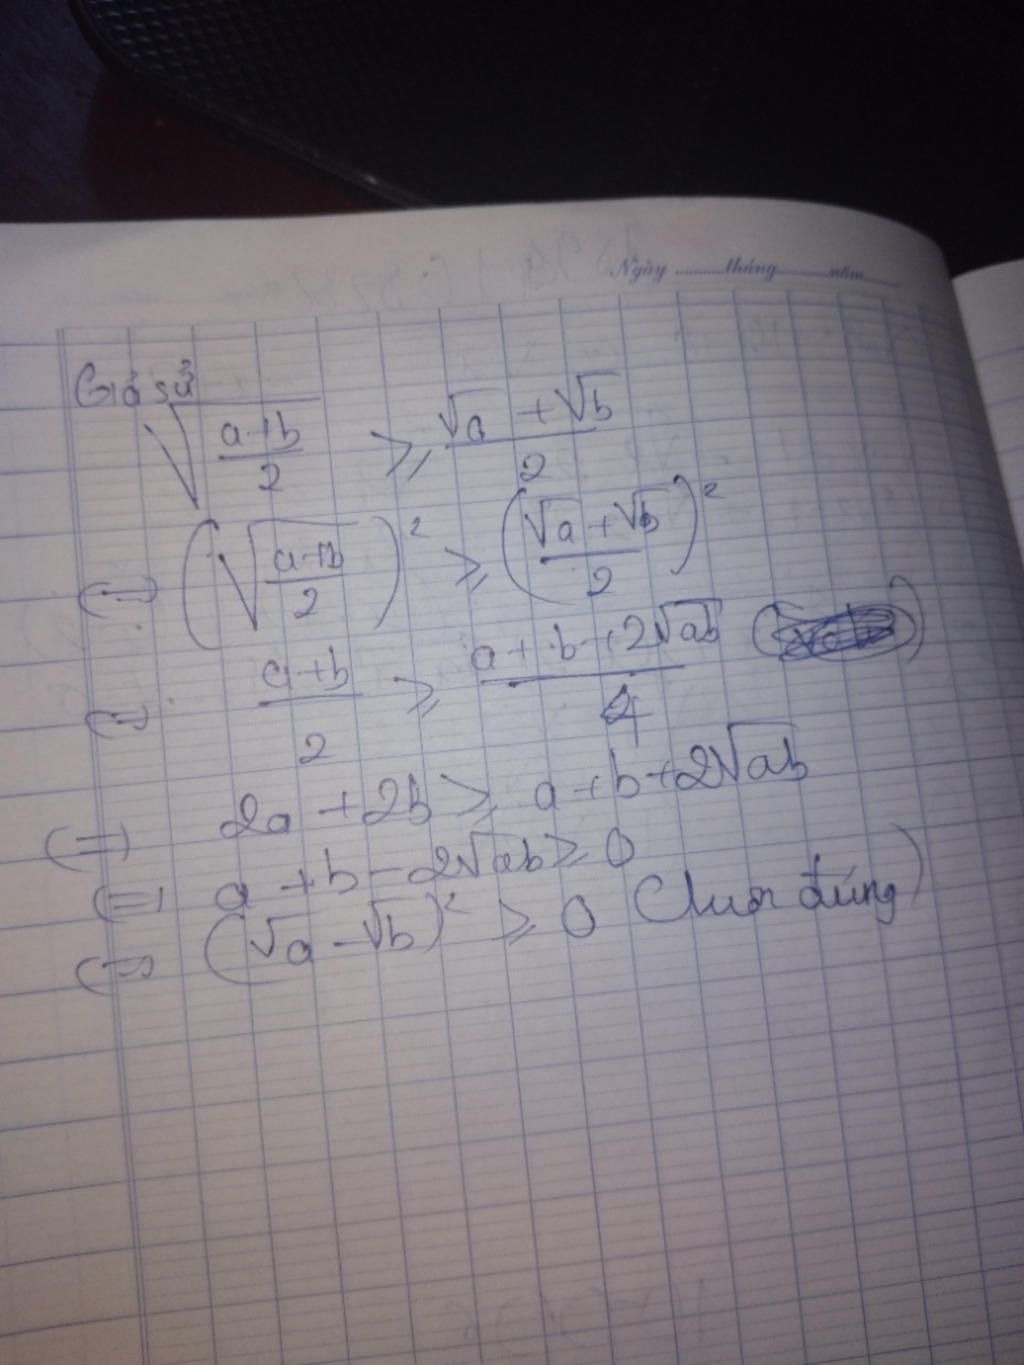 Ngày ..........tháng..........năm..........
Giả sử
√((a+b)/2) ≥ (√a + √b)/2
(=) (√((a+b)/2))² ≥ ((√a + √b)/2)²
(=) (a+b)/2 ≥ (a + b + 2√ab)/4
(=) 2a + 2b ≥ a + b + 2√ab
(=) a + b - 2√ab ≥ 0
(=) (√a - √b)² ≥ 0 (luôn đúng)